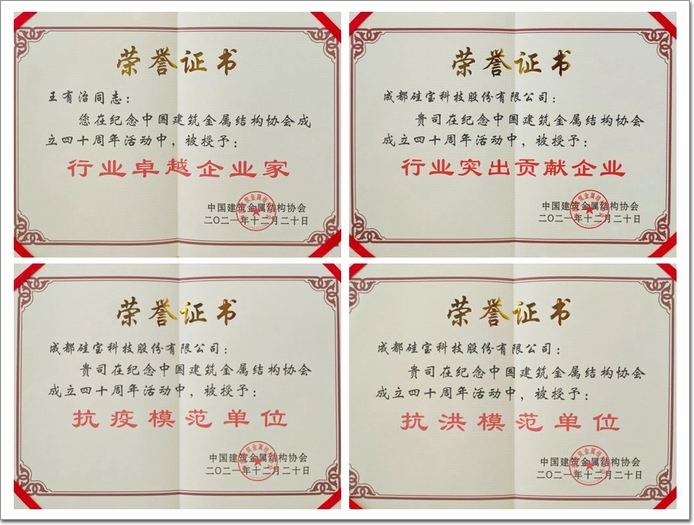 荣誉证书
王有治同志：
您在纪念中国建筑金属结构协会成
立四十周年活动中，被授予：
行业卓越企业家
中国建筑金属结构协会
二〇二一年十二月二十日
荣誉证书
成都硅宝科技股份有限公司：
贵司在纪念中国建筑金属结构协会
成立四十周年活动中，被授予：
行业突出贡献企业
中国建筑金属结构协会
二〇二一年十二月二十日
荣誉证书
成都硅宝科技股份有限公司：
贵司在纪念中国建筑金属结构协会
成立四十周年活动中，被授予：
抗疫模范单位
中国建筑金属结构协会
二〇二一年十二月二十日
荣誉证书
成都硅宝科技股份有限公司：
贵司在纪念中国建筑金属结构协会
成立四十周年活动中，被授予：
抗洪模范单位
中国建筑金属结构协会
二〇二一年十二月二十日